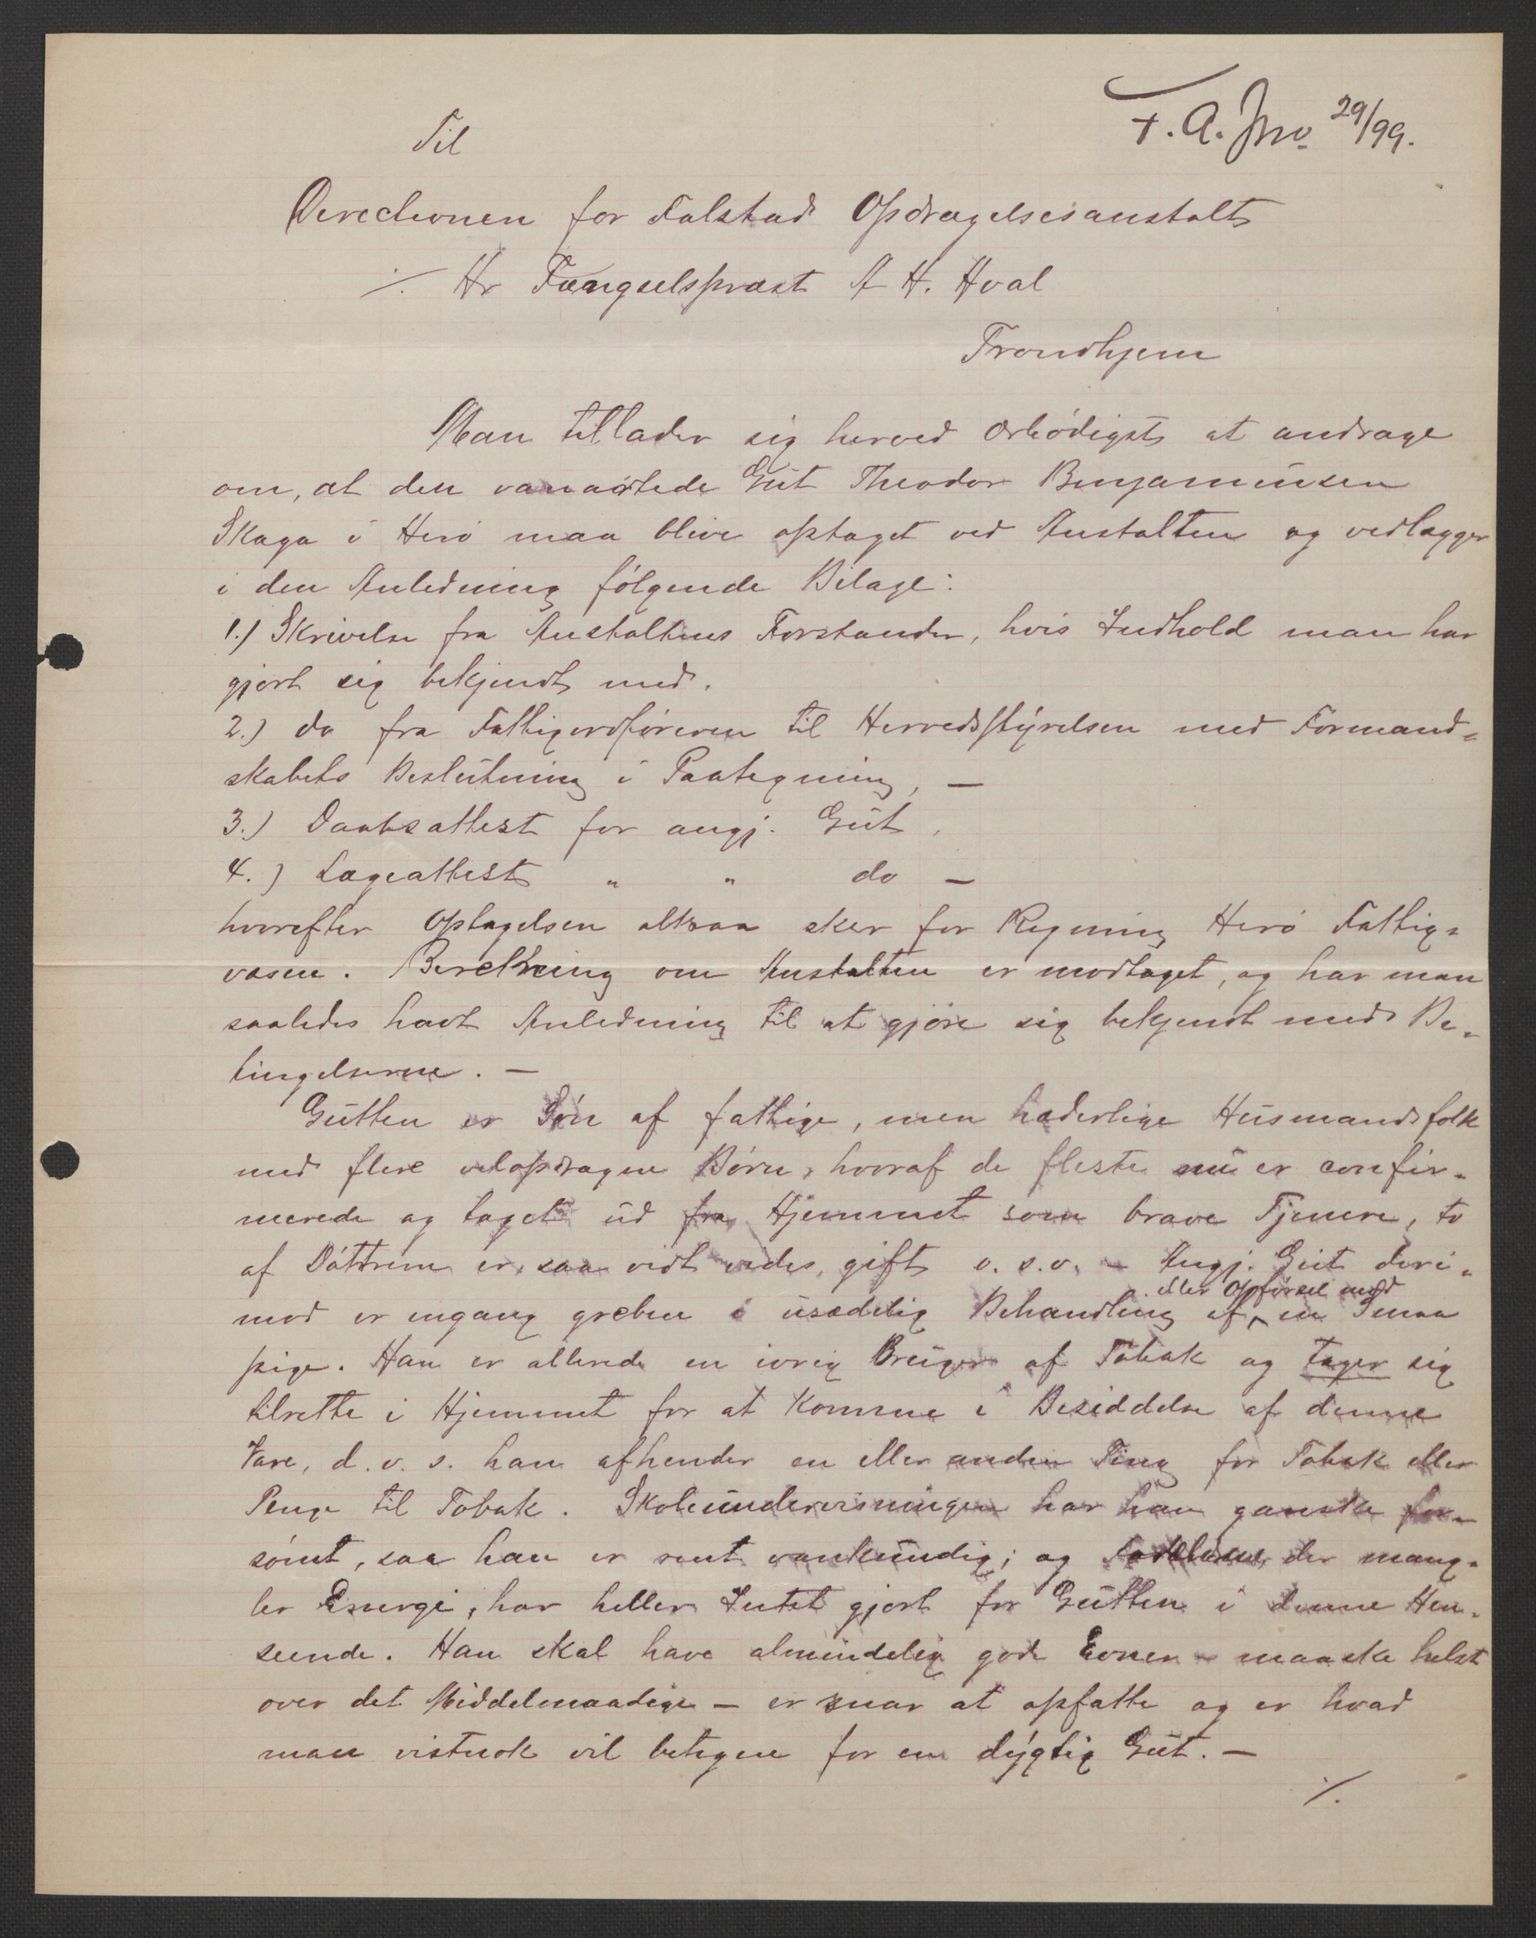 F. A. Jno 29/99.
Til
Directionen for Falstad Opdragelsesanstalt
./. Hr Fængselspræst A H. Hval
Trondhjem
Man tillader sig herved ærbødigst at andrage
om, at den vanartede Gut Theodor Benjaminsen
Skaga i Herø maa blive optaget ved Anstalten og vedlægger
i den Anledning følgende Bilage:
1.) Skrivelse fra Anstaltens Forstander, hvis Indhold man har
gjort sig bekjendt med.
2.) do fra Fattigordføreren til Herredsstyrelsen med Formand-
skabets Beslutning i Paategning, —
3.) Daabsattest for angj. Gut,
4.) Lægeattest " " do —
hvorefter Optagelsen altsaa sker for Regning Herø Fattig-
væsen. Beretning om Anstalten er modtaget, og har man
saaledes havt Anledning til at gjøre sig bekjendt med Be-
tingelserne. —
Gutten er Søn af fattige, men hæderlige Husmandsfolk
med flere velopdragne Børn, hvoraf de fleste nu er confir-
merede og taget ud fra Hjemmet som brave Tjenere, to
af Døttrene er, saa vidt vides, gift o. s. v. — Angj. Gut deri-
mod er engang greben i usædelig Behandling af eller Opførsel mod en Smaa
pige. Han er allerede en ivrig Bruger af Tobak og tager sig
tilrette i Hjemmet for at komme i Besiddelse af denne
Vare, d. v. s. han afhender en eller anden Ting for Tobak eller
Penge til Tobak. Skoleundervisningen har han ganske for-
sømt, saa han er rent vankundig; og Forældrene, der mang-
ler Energi, har heller Intet gjort for Gutten i denne Hen-
seende. Han skal have almindelig gode Evner — maaske helst
over det Middelmaadige — er snar at opfatte og er hvad
man vistnok vil betegne for en dygtig Gut. —
./.